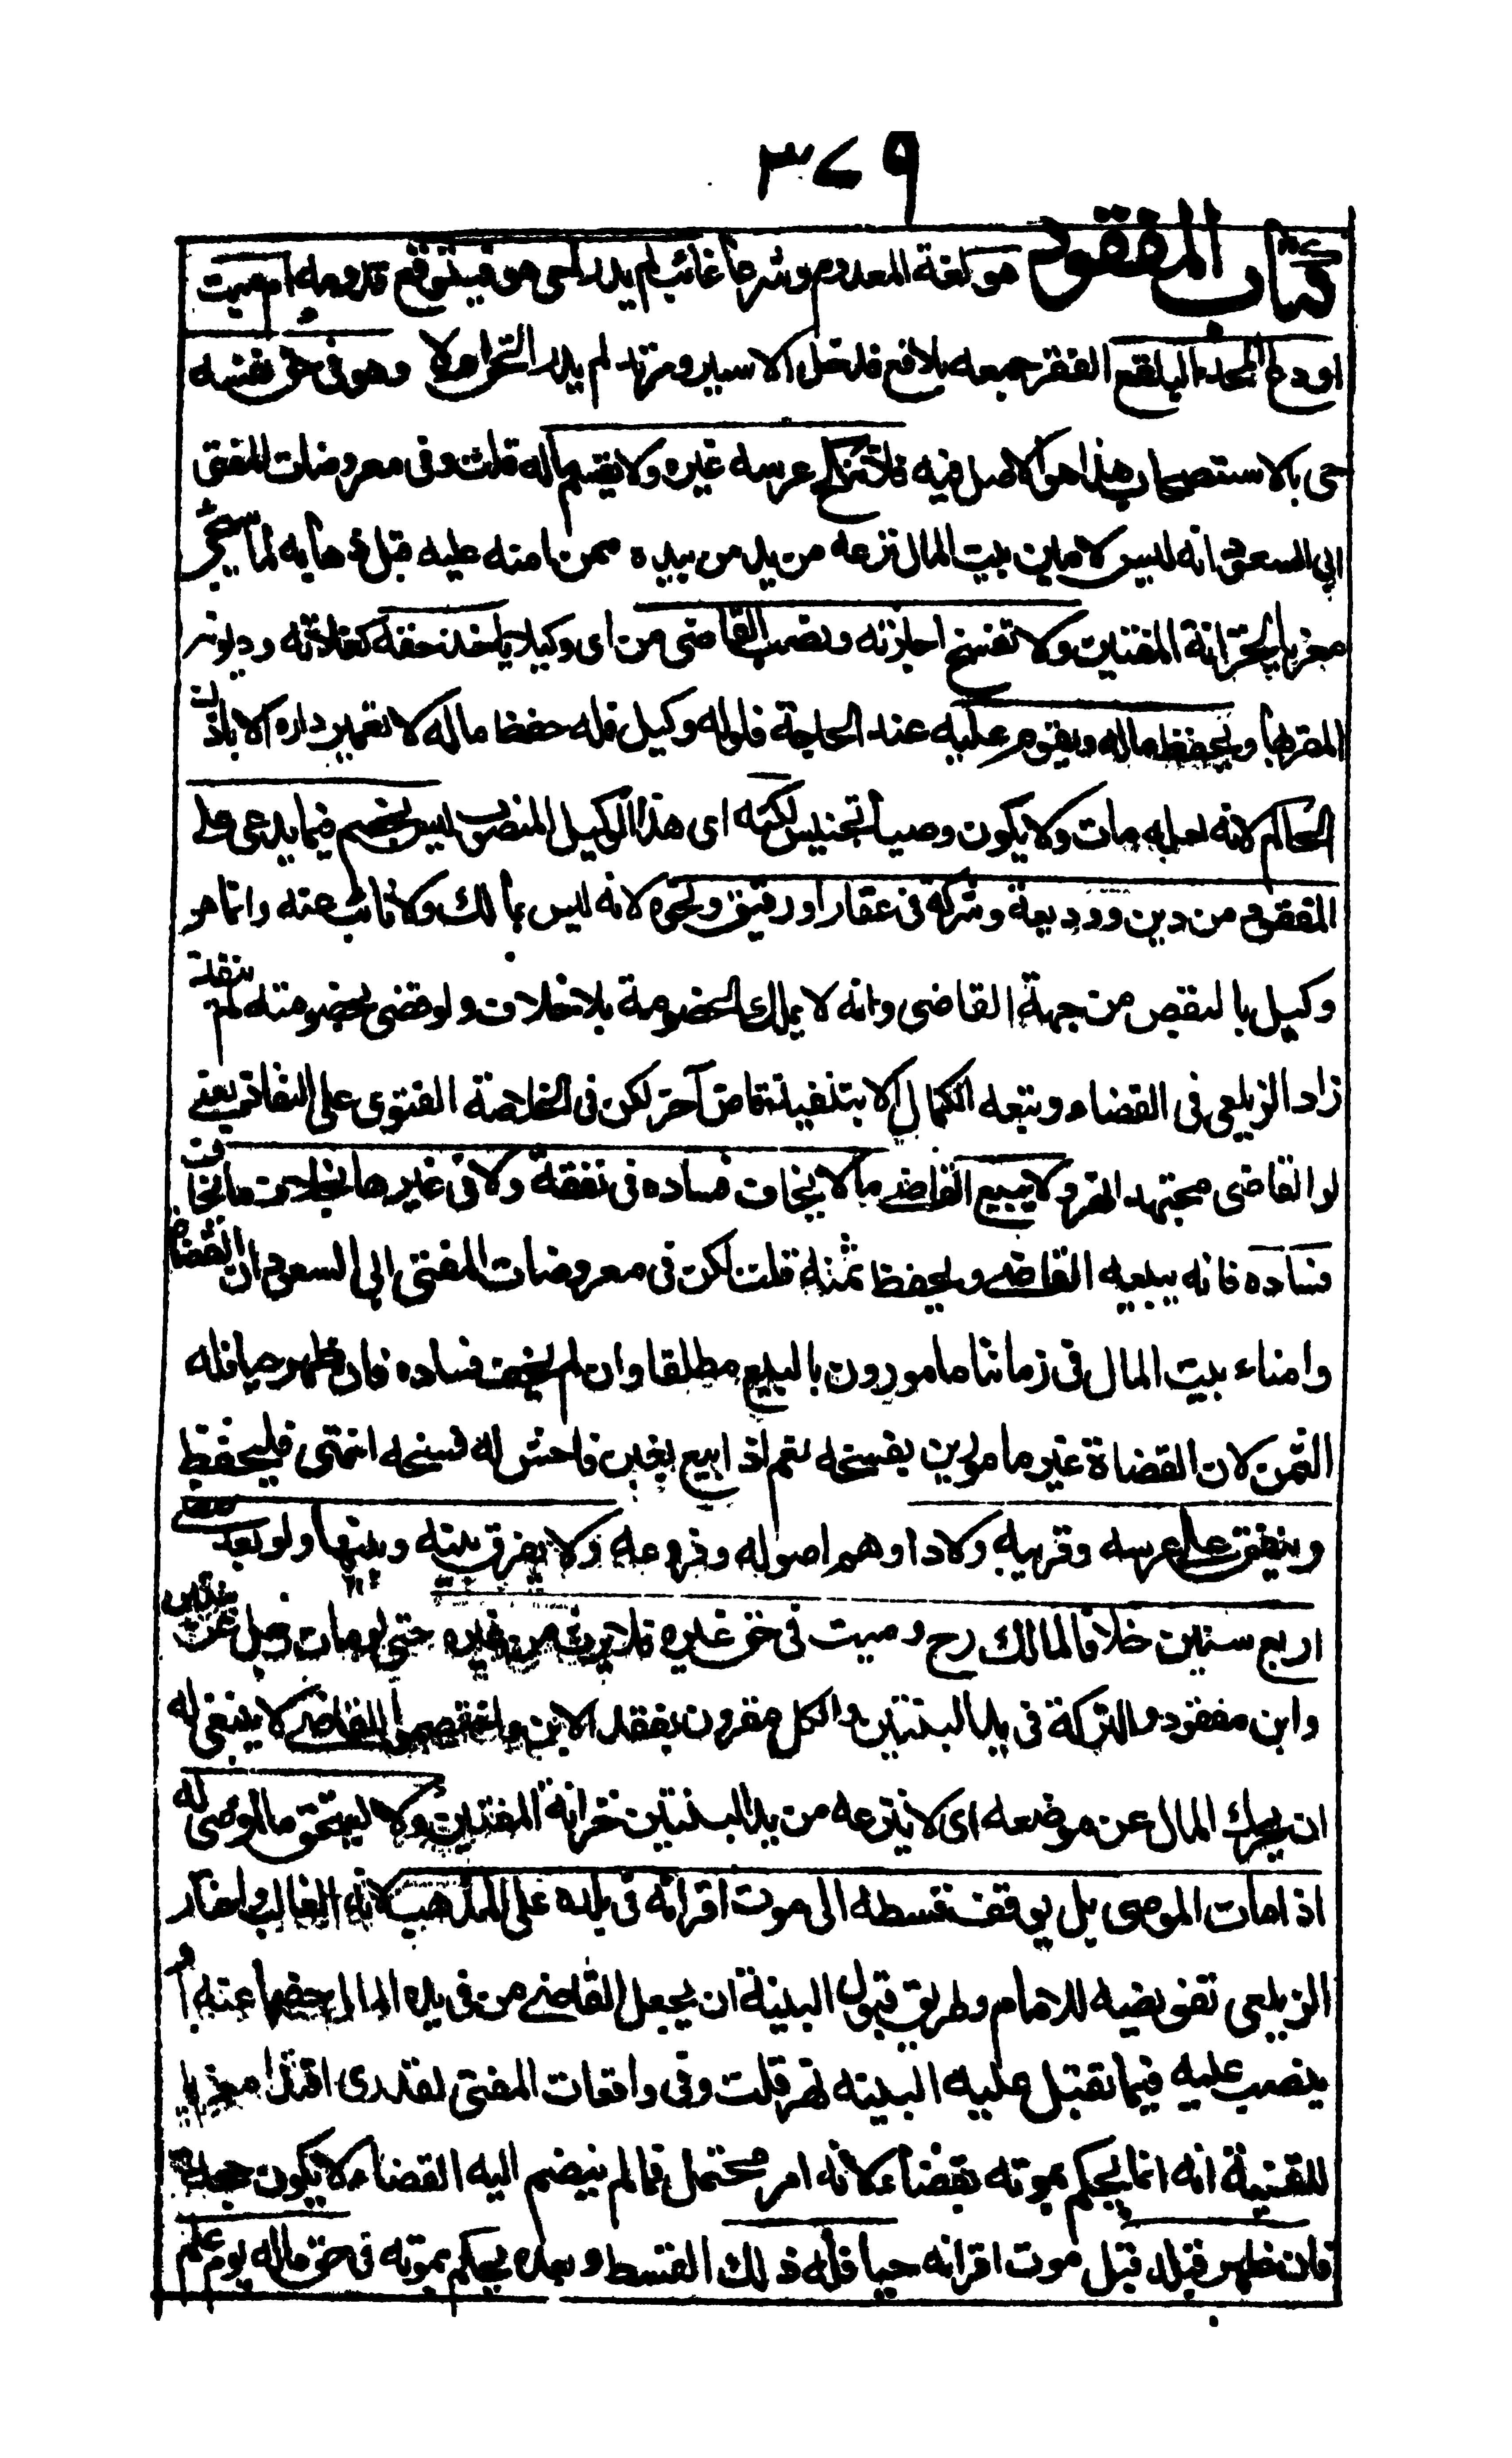 ٣٧٩
كتاب المفقود هو لغة المعدوم وشرعا غائب لم يدر احي هو فيتوقع قدومه ام ميت
اودع اللحد البلقع القفر جمعه بلاقع فدخل الاسير ومرتد لم يدر الحق ام لا وهو في حق نفسه
حي بالاستصحاب هذا هو الاصل فيه فلا تنكح عرسه غيره ولا يقسم ماله قلت وفي معروضات المفتي
ابي السعود انه ليس لامين بيت المال نزعه من يد من بيده ممن امنه عليه قبل ذهابه لما سيجئ
معزيا لخزانة المفتين ولا تفسخ اجارته ونصب القاضي من اي وكيلا ياخذ حقه كغلاته وديونه
المقر بها ويحفظ ماله ويقوم عليه عند الحاجة فلو له وكيل فله حفظ ماله لا تعمير داره الا باذن
الحاكم لانه لعله مات ولا يكون وصيا تجنيس لكنه اي هذا الوكيل المنصوب ليس بخصم فيما يدعى على
المفقود من دين ووديعة وشركة في عقار او رقيق ونحوه لانه ليس بمالك ولا نائب عنه وانما هو
وكيل بالقبض من جهة القاضي وانه لا يملك الخصومة بلا خلاف ولو قضى بخصومته لم ينفذ
زاد الزيلعي في القضاء وتبعه الكمال الا بتنفيذ قاض آخر لكن في الخلاصة الفتوى على النفاذ يعني
لو القاضي مجتهد انهر ولا يبيع القاضي ما لا يخاف فساده في نفقة ولا في غيرها بخلاف ما يخاف
فساده فانه يبيعه القاضي ويحفظ ثمنه قلت لكن في معروضات المفتي ابي السعود ان القضاة
وامناء بيت المال في زماننا مامورون بالبيع مطلقا وان لم يخف فساده فان ظهر حيا فله
الثمن لان القضاة غير مامورين بفسخه نعم اذا بيع بغبن فاحش له فسخه انتهى فليحفظ
وينفق على عرسه وقريبه ولادا وهم اصوله وفروعه ولا يفرق بينه وبينها ولو بعد مضي
اربع سنين خلافا لمالك رح وميت في حق غيره فلا يرث من غيره حتى لو مات رجل عن بنتين
وابن مفقود والتركة في يد البنتين والكل مقرون بفقد الابن واختصموا للقاضي لا ينبغي له
ان يحرك المال عن موضعه اي لا ينزعه من يد البنتين خزانة المفتين ولا يستحق ما اوصى له
اذا مات الموصي بل يوقف قسطه الى موت اقرانه في بلده على المذهب لانه الغالب واختار
الزيلعي تفويضه للامام وطريق قبول البينة ان يجعل القاضي من في يده المال خصما عنه او
ينصب عليه فيما تقبل عليه البينه نهر قلت وفي واقعات المفتي لقدري افندي معزيا
للقنية انه انما يحكم بموته بقضاء لانه امر محتمل فما لم ينضم اليه القضاء لا يكون حجة
فان ظهر قبله قبل موت اقرانه حيا فله ذلك القسط وبعده يحكم بموته في حق ماله يوم علم